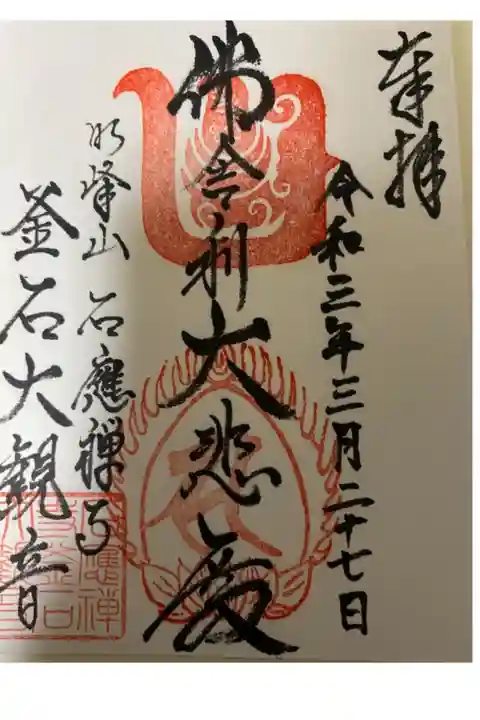 奉拝
令和三年三月二十七日
佛舎利大悲殿
明峰山 石應禅寺
釜石大観音